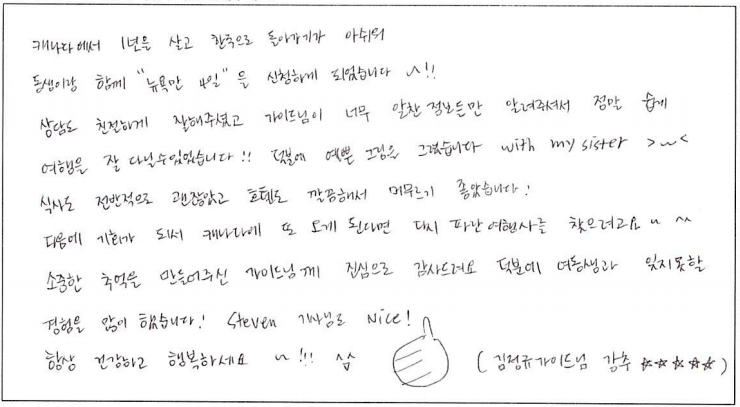 캐나다에서 1년을 살고 한국으로 돌아가기가 아쉬워
동생이랑 함께 "뉴욕만 4일"을 신청하게 되었습니다 ~!!
상담도 친절하게 잘해주셨고 가이드님이 너무 알찬 정보들만 알려주셔서 정말 쉽게
여행을 잘 다닐수있었습니다!! 덕분에 예쁜 그림을 그렸습니다 with my sister >~<
식사도 전반적으로 괜찮았고 호텔도 깔끔해서 머무르기 좋았습니다!
다음에 기회가 되서 캐나다에 또 오게 된다면 다시 파란여행사를 찾으려고요 ~ ^^
소중한 추억을 만들어주신 가이드님께 진심으로 감사드려요 덕분에 여동생과 잊지못할
경험을 많이 했습니다! Steven 기사님도 Nice!
항상 건강하고 행복하세요 ~!!! ^^ (김정규가이드님 강추 ☆☆☆☆☆)